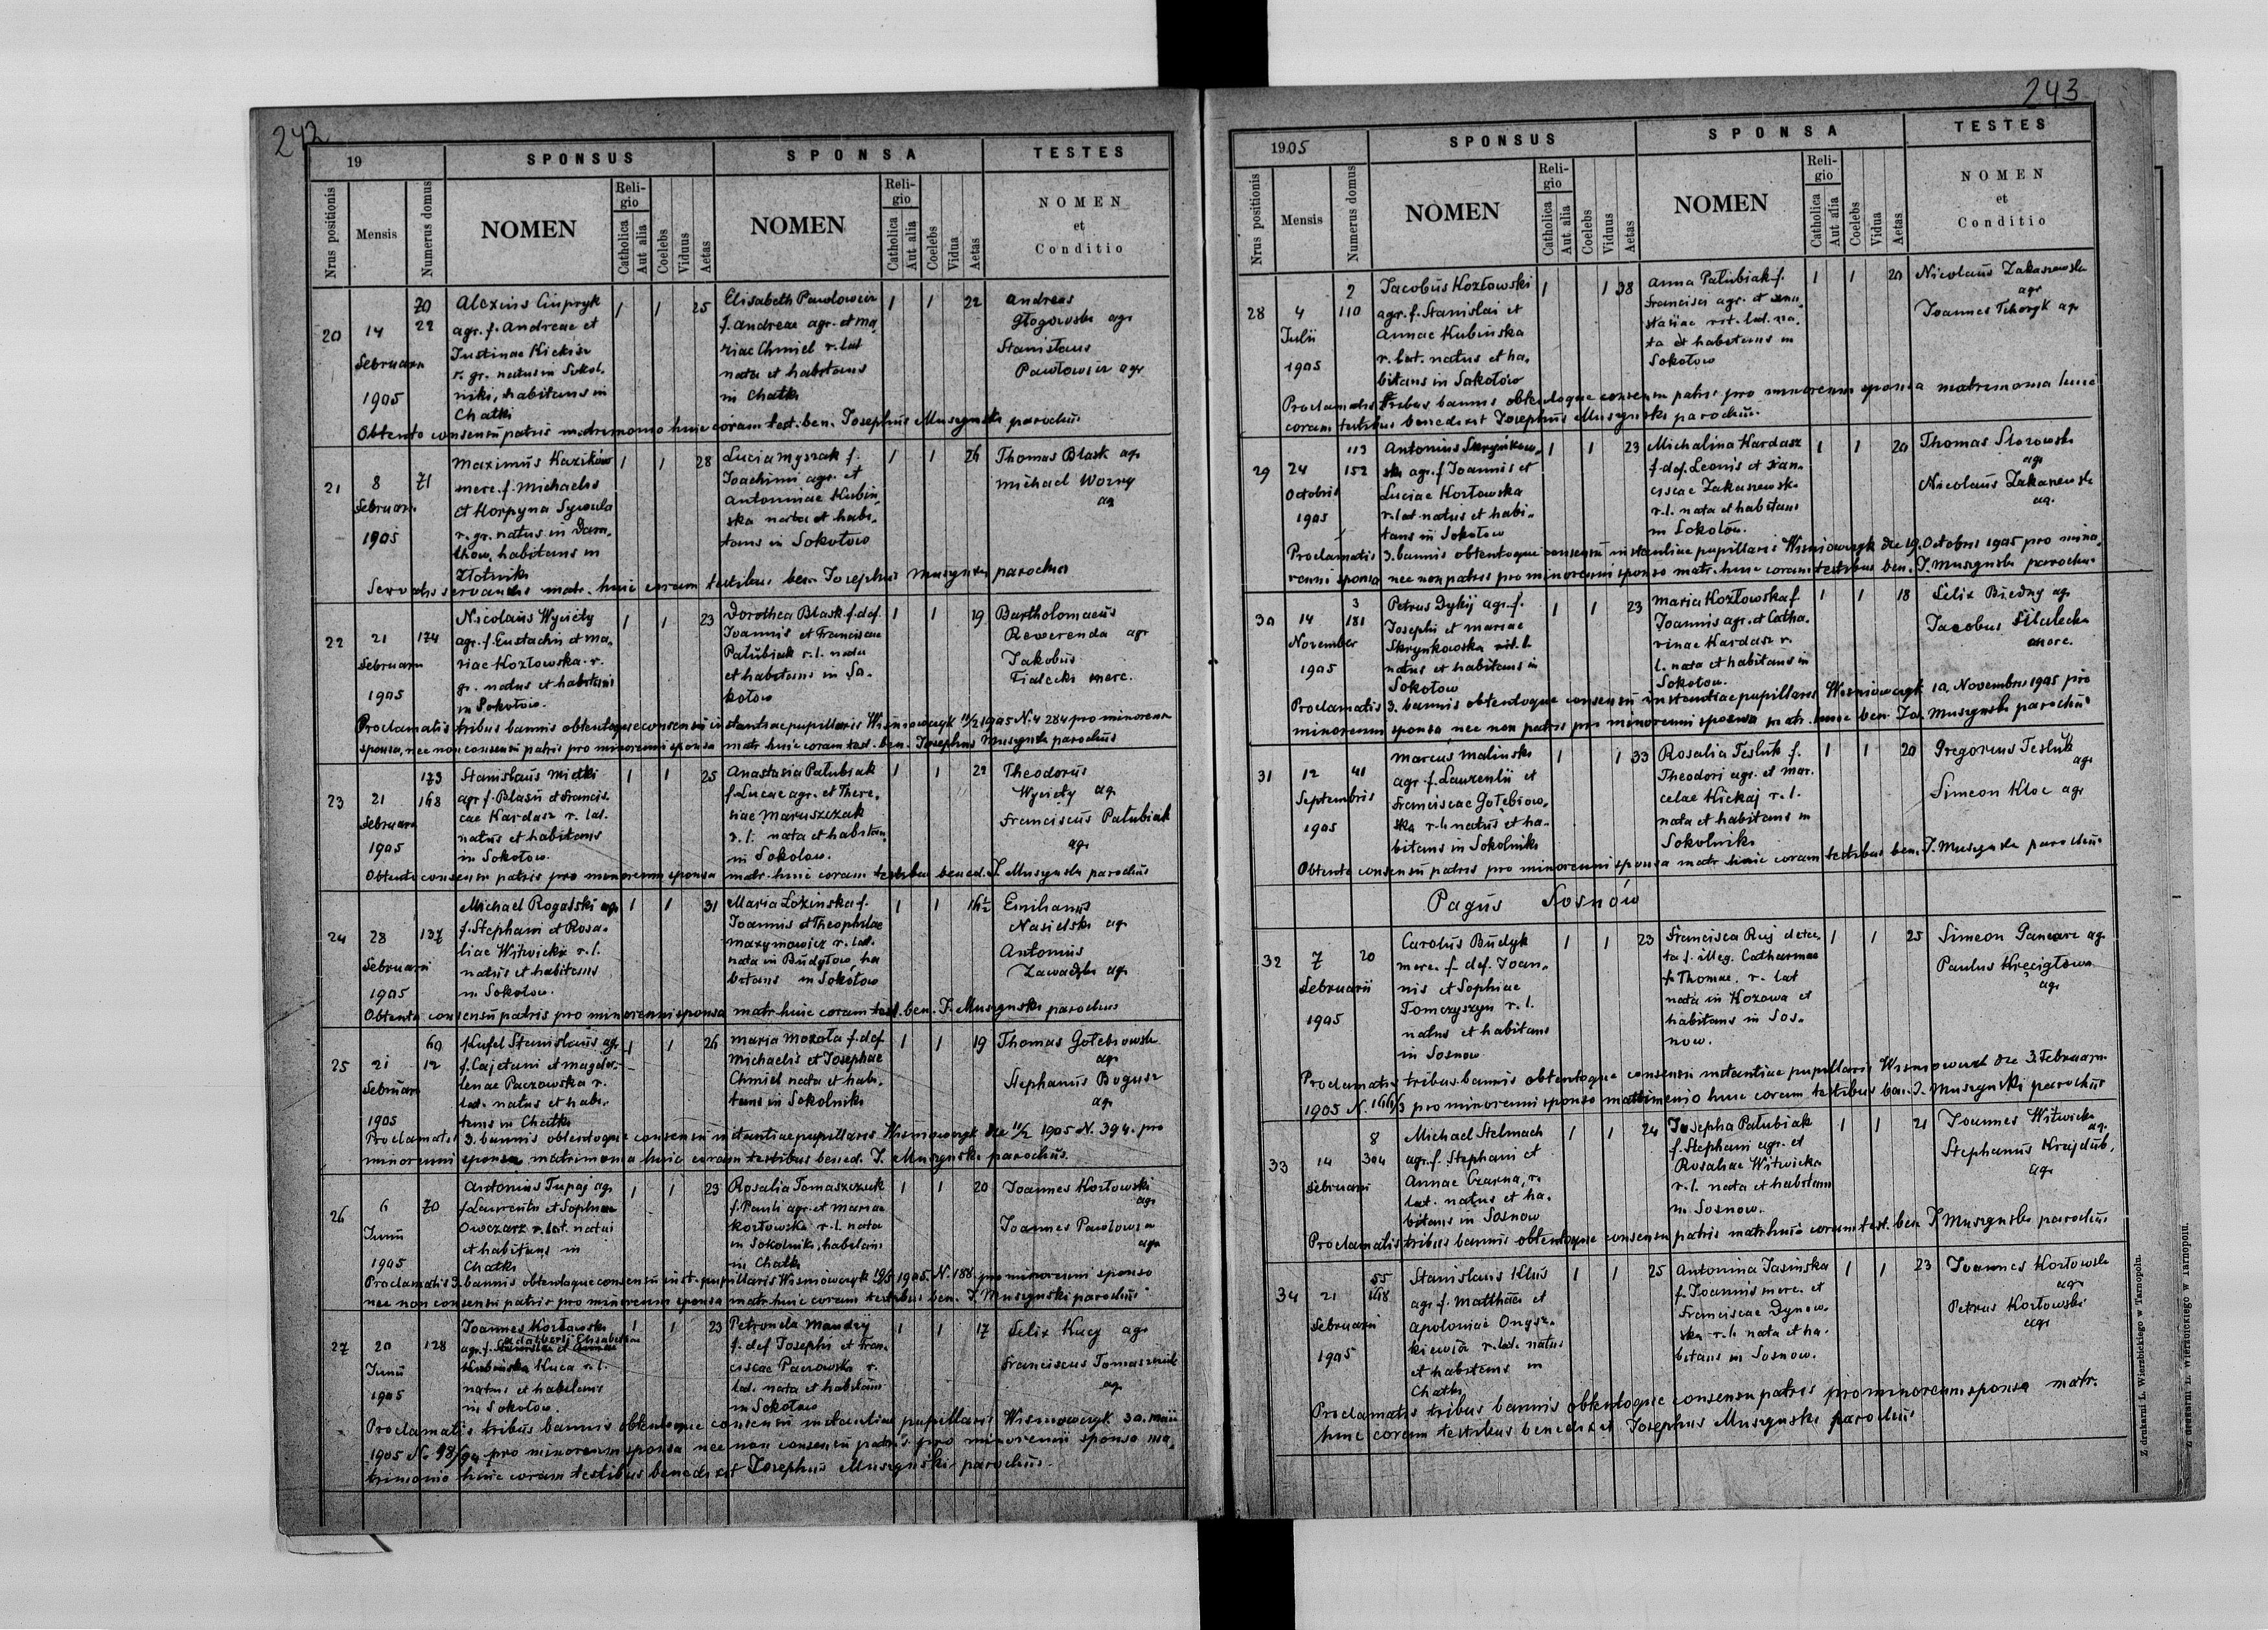 242
19
SPONSUS
SPONSA
TESTES
Nrus positionis
Mensis
Numerus domus
NOMEN
Religio
Catholica
Aut alia
Coelebs
Viduus
Aetas
NOMEN
Religio
Catholica
Aut alia
Coelebs
Vidua
Aetas
NOMEN
et
Conditio
20
14
Februarii
1905
70
22
Alexius
agr. f. Andreae et
Justinae
r. gr. natus in Sokol.
niki, habitans in
Chatki
1 1 25
Elisabeth Pawlowicz
f. Andreae agr. et Ma.
riae Chmiel r. lat
nata et habitans
in Chatki
1 1 22
Andreas
Głogowski agr
Stanislaus
Pawłowicz agr
Obtento consensu patris matrimonio huic coram test. ben. Josephus Muszynski parochus
21
8
Februarii
1905
71
Maximus Kazikow
merc. f. Michaelis
et Horpyna
r. gr. natus in
habitans in
Złotniki
1 1 28
Lucia Myszak f.
Joachimi agr. et
Antoninae Kubin.
ska nata et habi.
tans in Sokołow
1 1 26
Thomas Blask agr
Michael Wozny
ag
Servatis servandis matr. huic coram testibus ben. Josephus Muszynski parochus
22
21
Februarii
1905
174
Nicolaus Wycięty
agr. f. Eustachii et Ma.
riae Kozłowska r.
gr. natus et habitans
in Sokołow.
1 1 23
Dorothea Blask f. def
Joannis et Franciscae
Pałubiak r. l. nata
et habitans in So.
kołow
1 1 19
Bartholomaeus
Reverenda agr
Jakobus
Fiałecki merc.
Proclamatis tribus bannis obtentoque consensu instantiae pupillaris Wisniowczyk 11/2 1905 N. 4 284 pro minorenni
sponsa, nec non consensu patris pro minorenni sponsa matr. huic coram test. ben. Josephus Muszynski parochus
23
21
Februarii
1905
173
168
Stanislaus Mietki
agr f. Blasii et Francis.
cae Kardasz r. lat.
natus et habitans
in Sokołow.
1 1 25
Anastasia Pałubiak
f. Lucae agr. et There.
siae Maruszczak
r. l. nata et habitans
in Sokołow.
1 1 22
Theodorus
Wycięty ag.
Franciscus Pałubiak
agr
Obtento consensu patris pro minorenni sponsa matr. huic coram testibus bened. J. Muszynski parochus
24
28
Februarii
1905
137
Michael Rogalski agr
f. Stephani et Rosa.
liae Witwicki r. l.
natus et habitans
in Sokołow.
1 1 31
Maria Łozinska f.
Joannis et Theophilae
Maxymowicz r. lat.
nata in Budyłow ha
bitans in Sokołow
1 1 16½
Emilianus
Nasielski ag
Antonius
Zawadzki agr
Obtento consensu patris pro minorenni sponsa matr. huic coram test. ben. J. Muszynski parochus
25
21
Februarii
1905
60
12
Kufel Stanislaus agr
f. Cajetani et Magda.
lenae Paczowska r.
lat. natus et habi.
tans in Chatki
1 1 26
Maria Mozoła f. def
Michaelis et Josephae
Chmiel nata et habi.
tans in Sokolniki
1 1 19
Thomas Gołebiowski
agr
Stephanus Bogusz
agr
Proclamatis 3. bannis obtentoque consensu instantiae pupillaris Wisniowczyk die 11/2 1905 N. 394. pro
minorenni sponsa matrimonio huic coram testibus bened. J. Muszynski parochus.
26
6
Junii
1905
70
Antonius Tupaj agr
f. Laurentii et Sophiae
Owczarz r. lat. natus
et habitans in
Chatki
1 1 23
Rosalia Tomaszczuk
f. Pauli agr. et Mariae
Kozłowska r. l. nata
in Sokolniki, habitans
in Chatki
1 1 20
Joannes Kozłowski
agr
Joannes Pawłowicz
agr
Proclamatis 3. bannis obtentoque consensu inst. pupillaris Wisniowczyk 1905 N. 188 pro minorenni sponso
nec non consensu patris pro minorenni sponsa matr. huic coram testibus ben. J. Muszynski parochus
27
20
Junii
1905
128
Joannes Kozłowski
Adalberti Elisabethae
agr. f. Stanislai et Annae
Kubinska Kuca r. l.
natus et habitans
in Sokołow.
1 1 23
Petronela Mandzy
f. def Josephi et Fran.
ciscae Paczowska r.
lat. nata et habitans
in Sokołow
1 1 17
Felix Kucy agr
Franciscus Tomaszczuk
agr
Proclamatis tribus bannis obtentoque consensu instantiae pupillaris Wisniowczyk 30. Maii
1905 N. 98/94 pro minorenni sponsa nec non consensu patris pro minorenni sponso ma.
trimonio huic coram testibus benedixit Josephus Muszyński parochus.
243
1905
SPONSUS
SPONSA
TESTES
Nrus positionis
Mensis
Numerus domus
NOMEN
Religio
Catholica
Aut alia
Coelebs
Viduus
Aetas
NOMEN
Religio
Catholica
Aut alia
Coelebs
Vidua
Aetas
NOMEN
et
Conditio
28
4
Julii
1905
2
110
Jacobus Kozłowski
agr. f. Stanislai et
Annae Kubinska
r. lat. natus et ha.
bitans in Sokołów
1 1 38
Anna Pałubiak f.
Francisci agr. et Ana.
stasiae rit. lat. na.
ta et habitans in
Sokołow
1 1 20
Nicolaus Zakaszewski
agr
Joannes Tchoryk agr
Proclamatis tribus bannis obtentoque consensu patris pro minorenni sponsa matrimonio huic
coram testibus benedixit Josephus Muszynski parochus.
29
24
Octobris
1905
113
152
Antonius Skrzyńkow.
ski agr. f. Joannis et
Luciae Kozłowska
r. lat. natus et habi.
tans in Sokołow
1 1 23
Michalina Kardasz
f. def. Leonis et Fran.
ciscae Zakaszewska
r. l. nata et habitans
in Sokołow.
1 1 20
Thomas Słozowski
agr
Nicolaus Zakaszewski
ag.
Proclamatis 3. bannis obtentoque consensu instantiae pupillaris Wisniowczyk die 19. Octobris 1905 pro mino.
renni sponsa nec non patris pro minorenni sponso matr. huic coram testibus ben. J. Muszynski parochus
30
14
November
1905
3
181
Petrus Dykij agr. f.
Josephi et Mariae
Skrynkowska rit. l.
natus et habitans in
Sokołow
1 1 23
Maria Kozłowska f.
Joannis agr. et Catha.
rinae Kardasz r.
l. nata et habitans in
Sokołow.
1 1 18
Felix Biedny agr
Jacobus Fiałecki
merc.
Proclamatis 3. bannis obtentoque consensu instantiae pupillaris Wisniowczyk 10. Novembris 1905 pro
minorenni sponsa nec non patris pro minorenni sponso matr. huic ben. Jos. Muszynski parochus
31
12
Septembris
1905
41
Marcus Malinski
agr. f. Laurentii et
Franciscae Gołębiow.
ska r. l. natus et ha.
bitans in Sokolniki
1 1 33
Rosalia Tesluk f.
Theodori agr. et Mar.
celae Kickaj r. l.
nata et habitans in
Sokolniki
1 1 20
Gregorius Tesluk
agr
Simeon Kloc agr
Obtento consensu patris pro minorenni sponsa matr. huic coram testibus ben. J. Muszynski parochus
Pagus Sosnów
32
7
Februarii
1905
20
Carolus Budyk
merc. f. def. Joan.
nis et Sophiae
Tomczyszyn r. l.
natus et habitans
in Sosnow
1 1 23
Francisca Ruj
f. illeg. Catharinae
f. Thomae, r. lat
nata in Kozowa et
habitans in Sos.
now.
1 1 25
Simeon Gancarz ag.
Paulus Kręcigłowa
agr
Proclamatis tribus bannis obtentoque consensu instantiae pupillaris Wisniowczyk die 3. Februarii
1905 N. pro minorenni sponso matrimonio huic coram testibus ben. J. Muszynski parochus
33
14
Februarii
8
304
Michael Stelmach
agr. f. Stephani et
Annae Czarna, r.
lat. natus et ha.
bitans in Sosnow
1 1 24
Josepha Pałubiak
f. Stephani agr. et
Rosaliae Witwicka
r. l. nata et habitans
in Sosnow.
1 1 21
Joannes Witwicki
ag.
Stephanus Krajdub,
agr
Proclamatis tribus bannis obtentoque consensu patris matr. huic coram test. ben J. Muszynski parochus
34
21
Februarii
1905
55
Stanislaus Klus
agr. f. Matthaei et
Apoloniae Onysz.
kiewicz r. lat. natus
et habitans in
Chatki
1 1 25
Antonina Jasinska
f. Joannis merc. et
Franciscae Dynow.
ska r. l. nata et ha.
bitans in Sosnow.
1 1 23
Joannes Kozłowski
agr
Petrus Kozłowski
agr
Proclamatis tribus bannis obtentoque consensu patris pro minorenni sponsa matr.
huic coram testibus benedixit Josephus Muszynski parochus
Z drukarni L. Wierzbickiego w Tarnopolu.
Z drukarni L. Wierzbickiego w Tarnopolu.